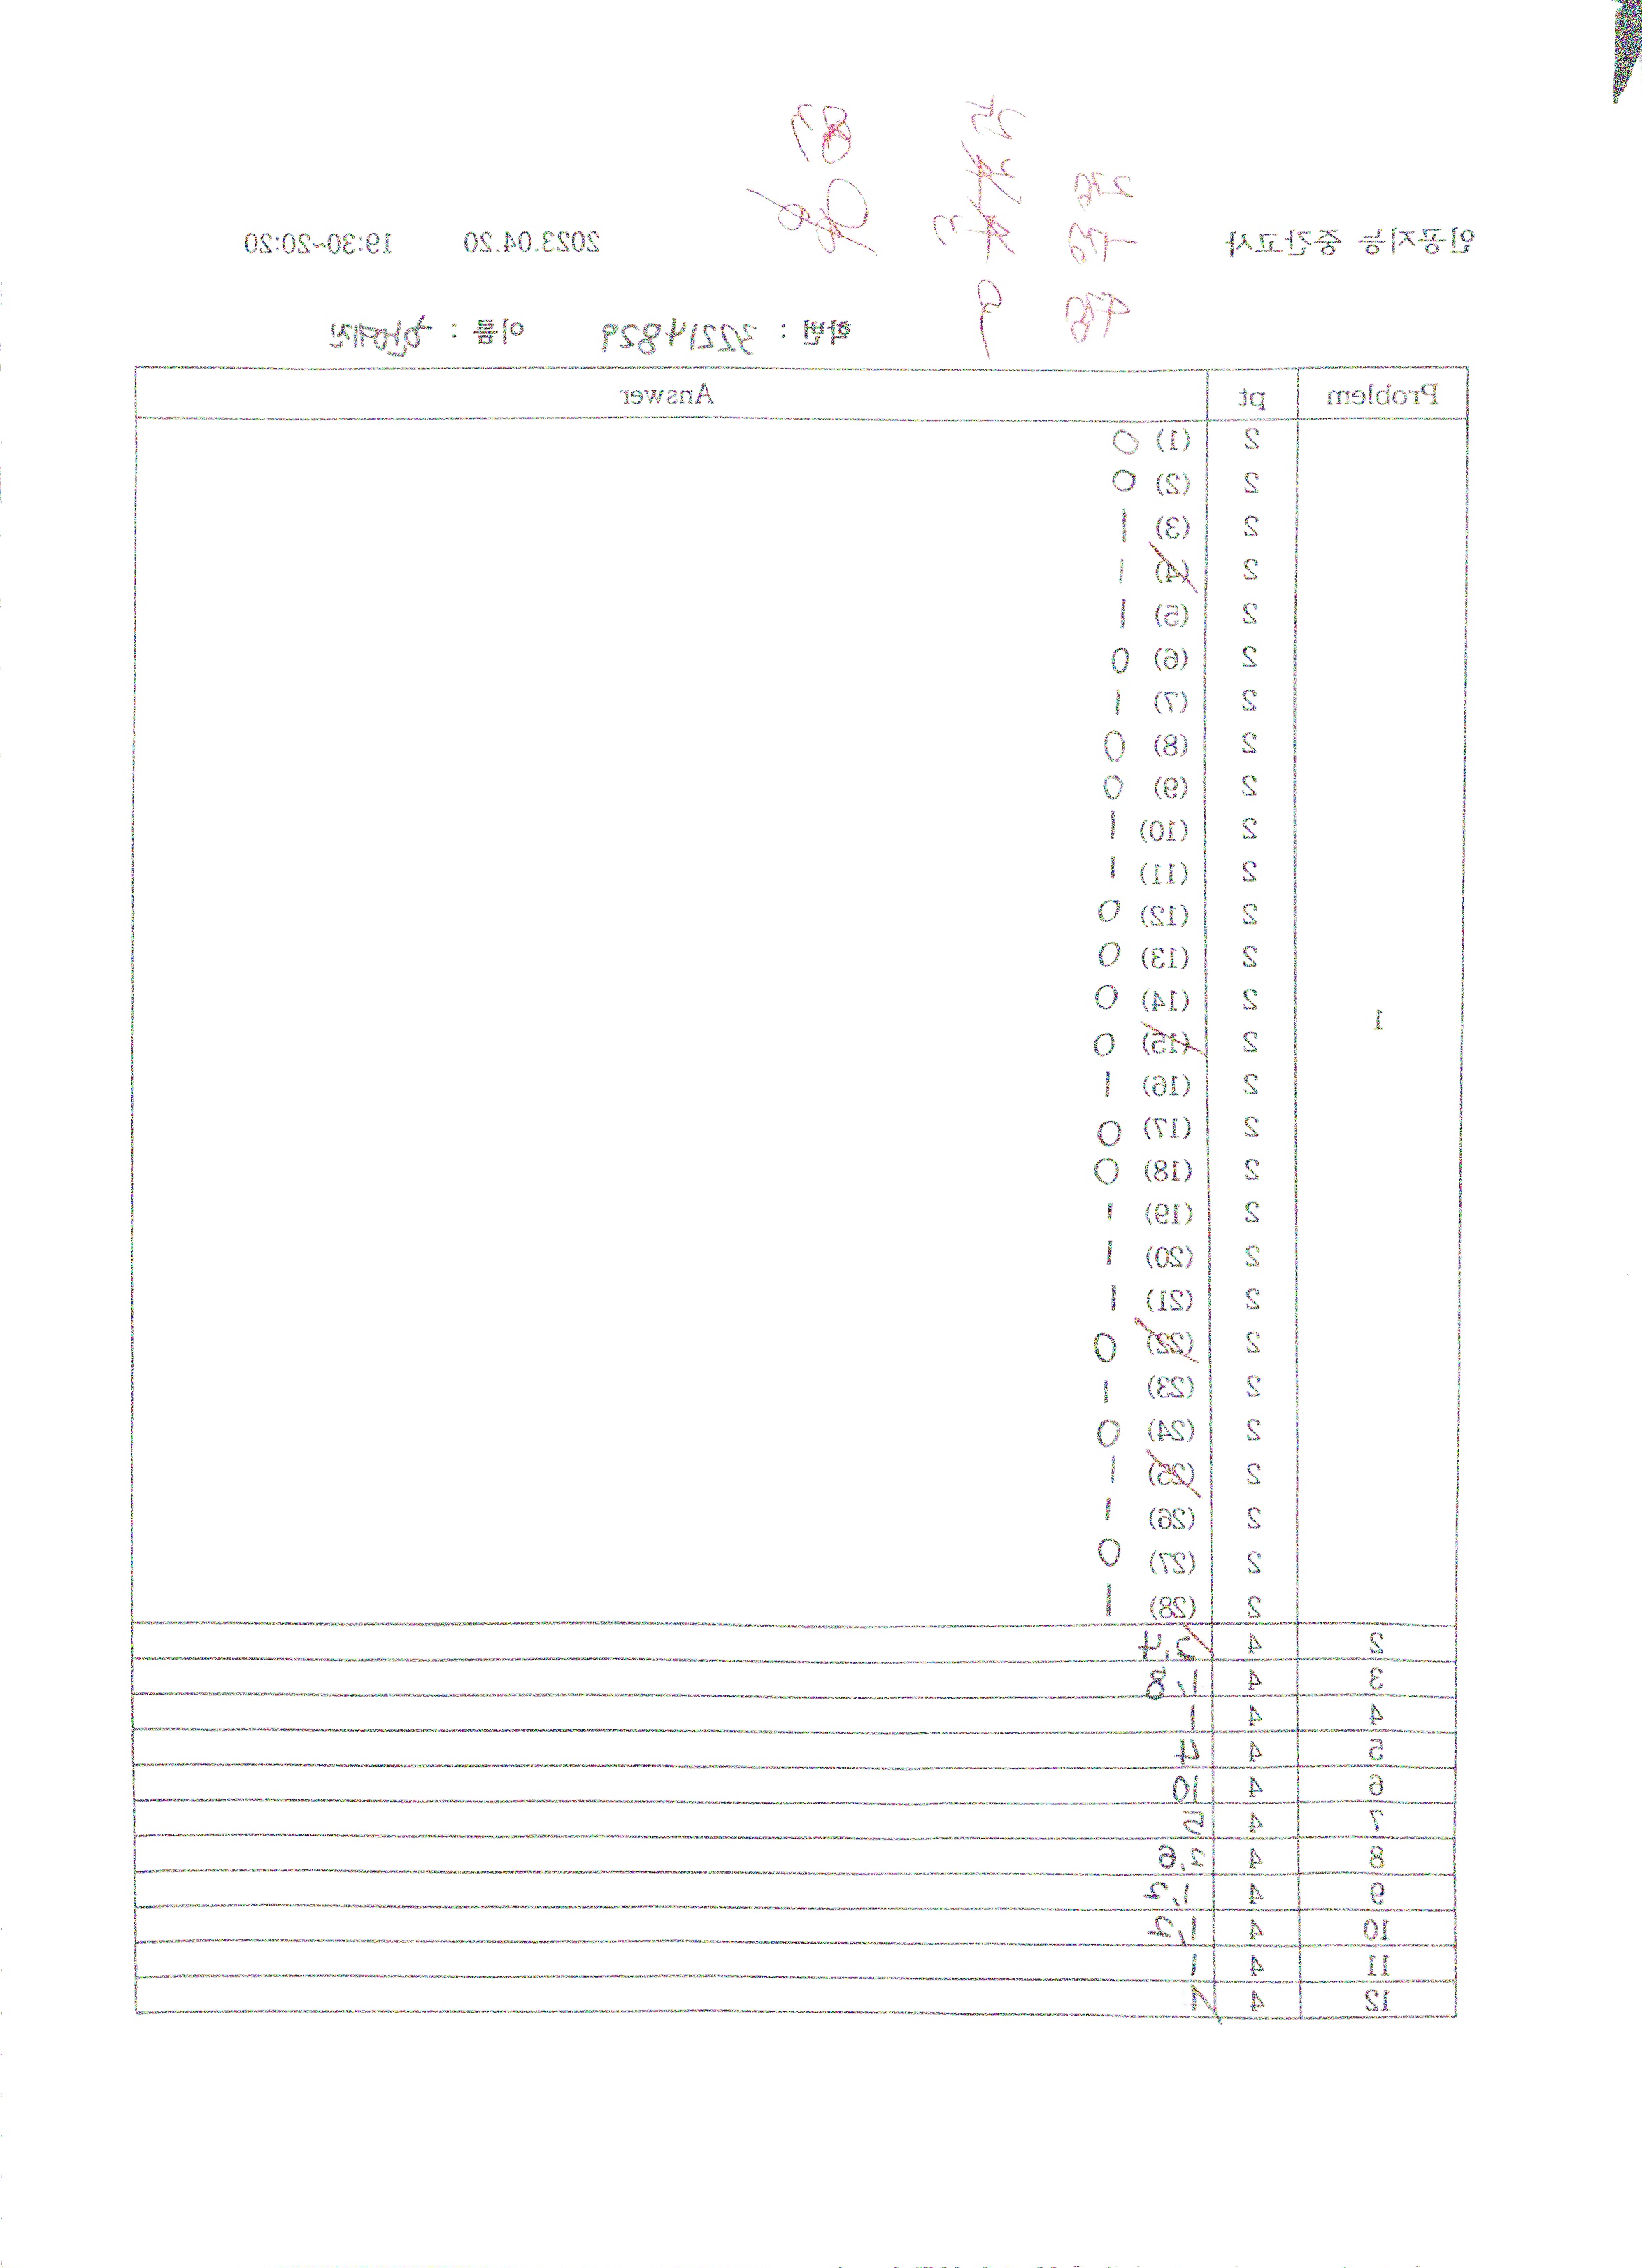 인공지능 중간고사 2023.04.20 19:30~20:20
학번 : 32214829 이름 :
Problem pt Answer
1
2 (1) 0
2 (2) 0
2 (3) 1
2 (4) 1
2 (5) 1
2 (6) 0
2 (7) 1
2 (8) 0
2 (9) 0
2 (10) 1
2 (11) 1
2 (12) 0
2 (13) 0
2 (14) 0
2 (15) 0
2 (16) 1
2 (17) 0
2 (18) 0
2 (19) 1
2 (20) 1
2 (21) 1
2 (22) 0
2 (23) 1
2 (24) 0
2 (25) 1
2 (26) 1
2 (27) 0
2 (28) 1
2 4 2,4
3 4 1,8
4 4 1
5 4 4
6 4 10
7 4 5
8 4 2,6
9 4 1,2
10 4 1,2
11 4 1
12 4